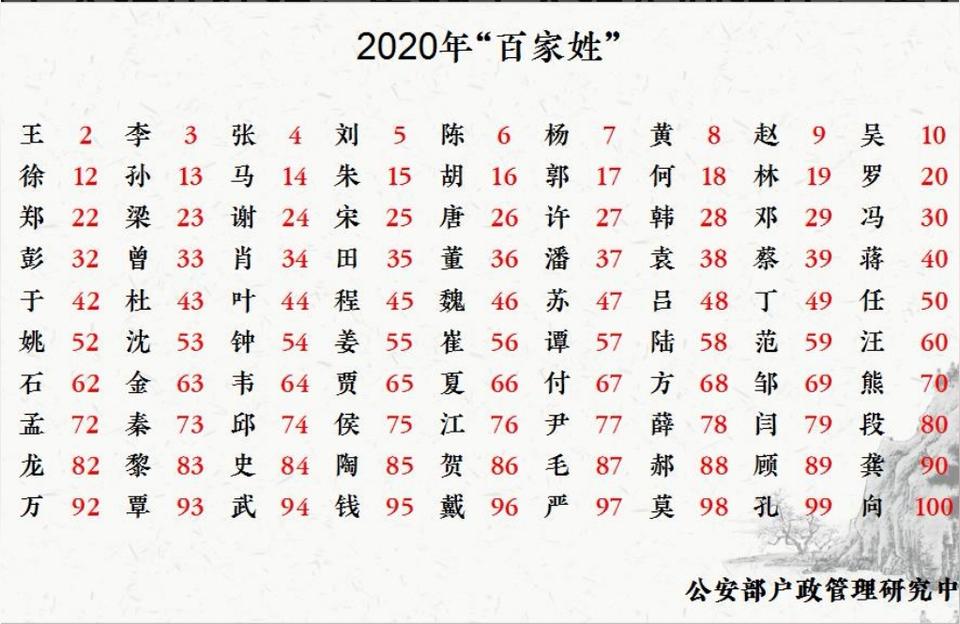 2020年“百家姓”
王 2 李 3 张 4 刘 5 陈 6 杨 7 黄 8 赵 9 吴 10
徐 12 孙 13 马 14 朱 15 胡 16 郭 17 何 18 林 19 罗 20
郑 22 梁 23 谢 24 宋 25 唐 26 许 27 韩 28 邓 29 冯 30
彭 32 曾 33 肖 34 田 35 董 36 潘 37 袁 38 蔡 39 蒋 40
于 42 杜 43 叶 44 程 45 魏 46 苏 47 吕 48 丁 49 任 50
姚 52 沈 53 钟 54 姜 55 崔 56 谭 57 陆 58 范 59 汪 60
石 62 金 63 韦 64 贾 65 夏 66 付 67 方 68 邹 69 熊 70
孟 72 秦 73 邱 74 侯 75 江 76 尹 77 薛 78 闫 79 段 80
龙 82 黎 83 史 84 陶 85 贺 86 毛 87 郝 88 顾 89 龚 90
万 92 覃 93 武 94 钱 95 戴 96 严 97 莫 98 孔 99 向 100
公安部户政管理研究中